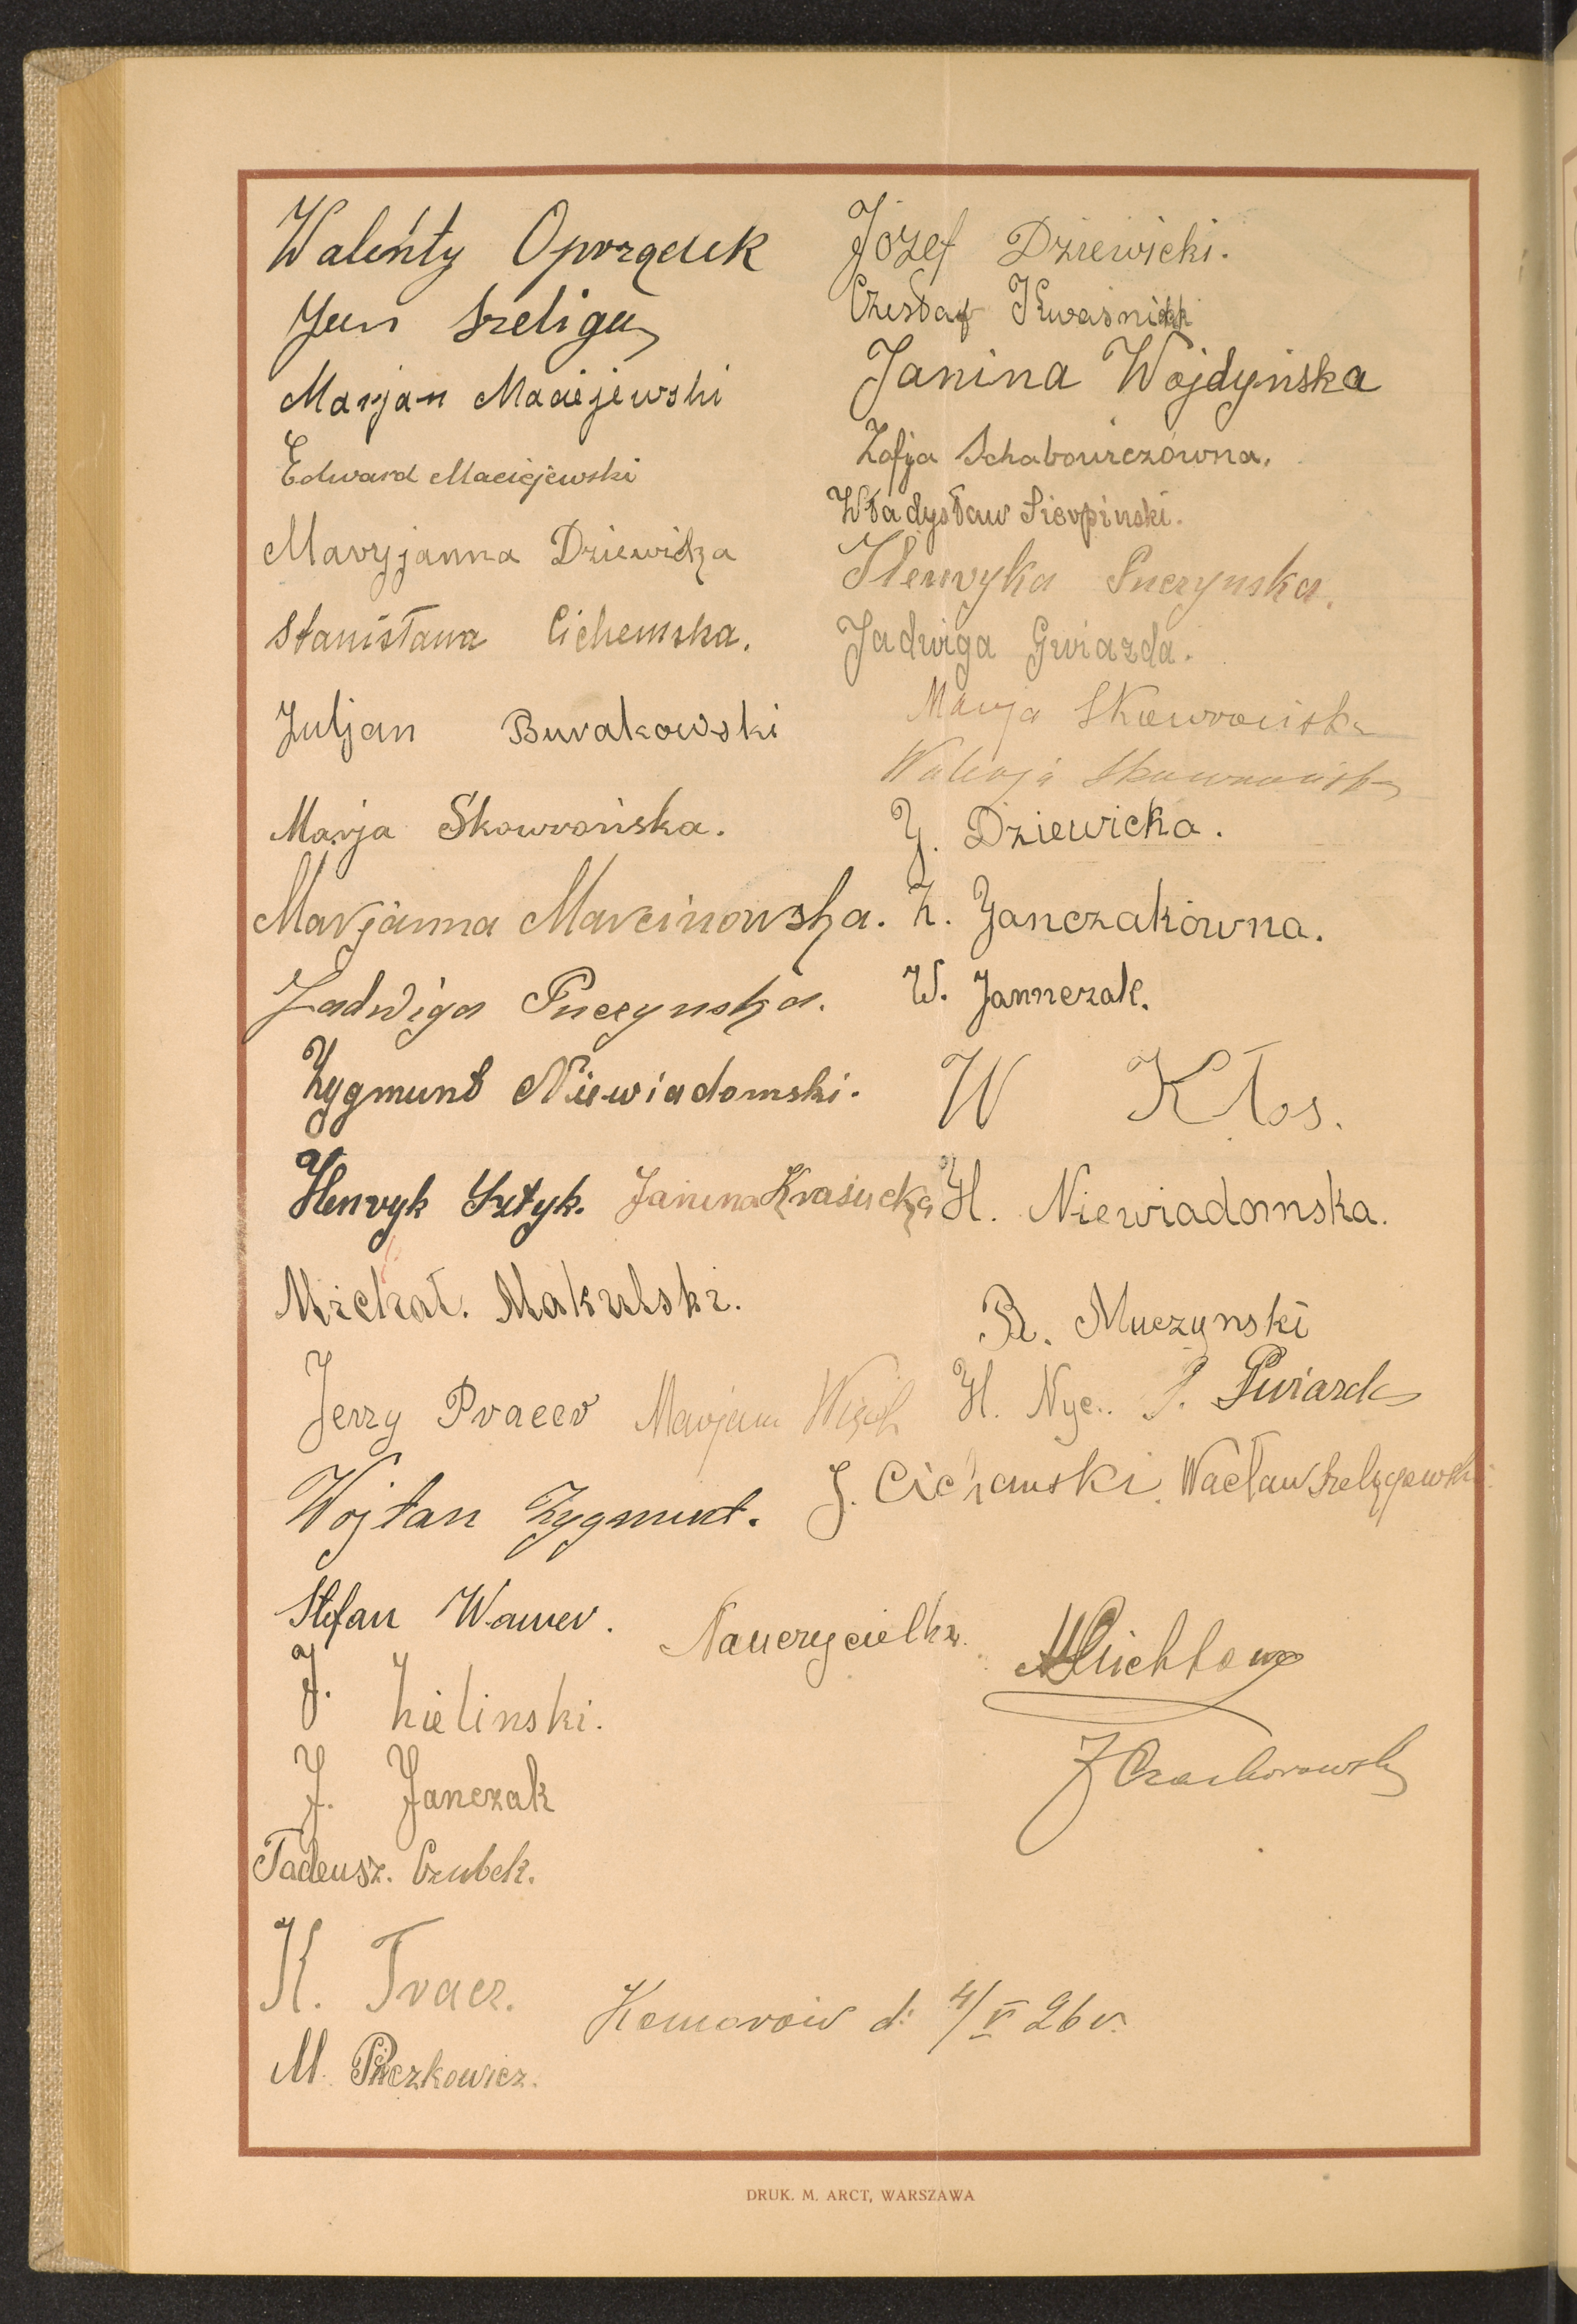 Walenty Oporządek
Jan Szeliga
Marjan Maciejewski
Edward Maciejewski
Maryjanna Dziewicka
Stanisława Cichemska.
Juljan Burakowski
Marja Skowrońska.
Marjanna Marcinowska.
Jadwiga Puczynska.
Zygmunt Niewiadomski.
Henryk Sztyk. Janina Krasucka
Michał. Makulski.
Jerzy Pracer Marjan
Wojtan Zygmunt.
Stefan Wawer.
J. Zielinski.
J. Janczak
Tadeusz. Czubek.
K. Tracz.
M. Pieczkowicz.
Józef Dziewicki.
Czesław Kwaśnik
Janina Wojdyńska
Zofja Schabowiczówna.
Władysław Sierpinski.
Henryka Puczynska.
Jadwiga Gwiazda.
Marja Skowrońska
Walerja Skowrońska
J. Dziewicka.
Z. Janczakówna.
W. Jannczak.
W Kłos.
H. Niewiadomska.
R. Muczynski
H. Nyc.. P. Gwiazda
J. Cichemski. Wacław Szelągowski
Nauczycielki.
J Czachorowska
Komorów d: 4/V 26 r.
DRUK. M. ARCT, WARSZAWA